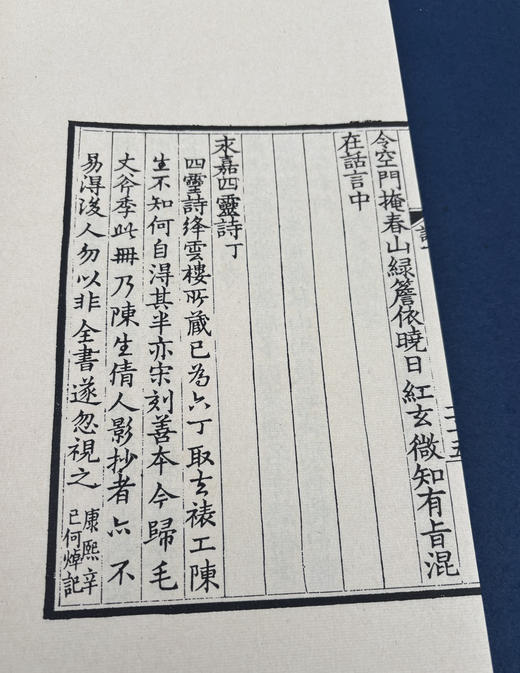 令空門掩春山緑簷依曉日紅玄微知有旨混
在話言中
永嘉四靈詩丁
四靈詩絳雲樓所藏已為六丁取去裱工陳
生不知何自得其半亦宋刻善本今歸毛
丈斧季此冊乃陳生倩人影抄者亦不
易得後人勿以非全書遂忽視之
康熙辛
巳何焯記
二十五